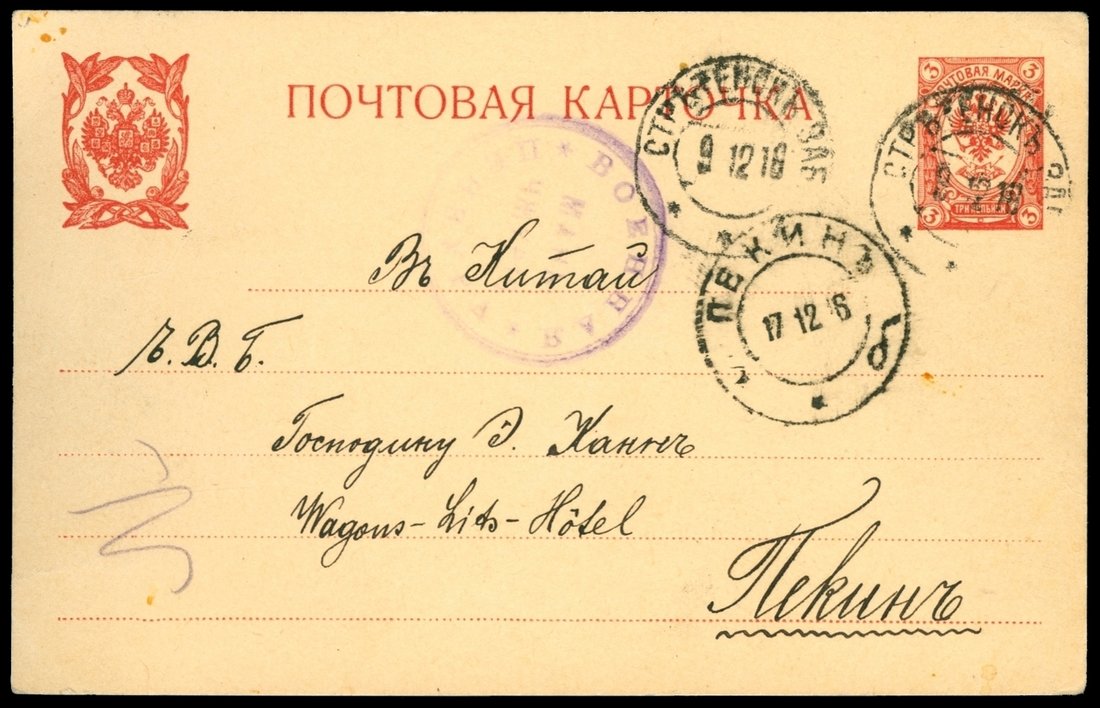 ПОЧТОВАЯ КАРТОЧКА
3 3
ПОЧТОВАЯ МАРКА
3 ТРИ КОПЕЙКИ 3
СТРѢТЕНСКЪ ЗАБ
9 12 16
СТРѢТЕНСКЪ ЗАБ
ВОЕННАЯ
ПЕКИНЪ
17 12 6
б
Въ Китай
ч. В. Б.
Господину Э. Каннъ
Wagons-Lits-Hôtel
Пекинъ